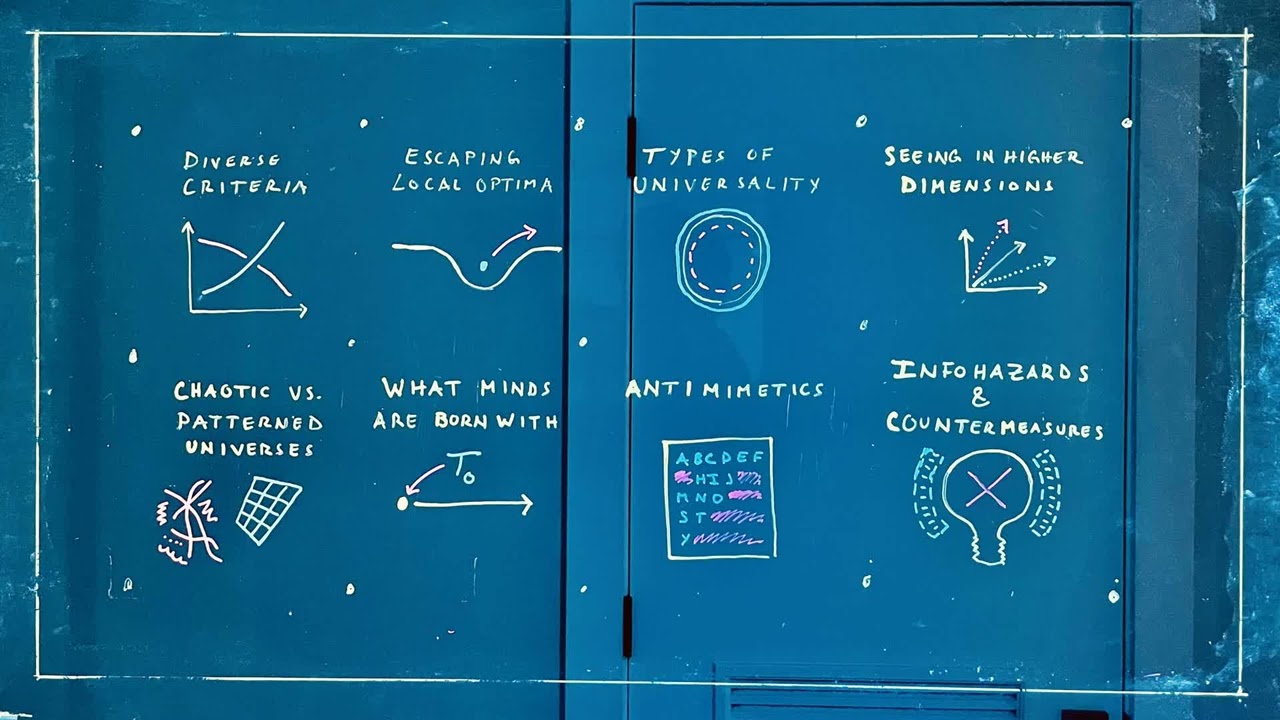 DIVERSE
CRITERIA
ESCAPING
LOCAL OPTIMA
TYPES OF
UNIVERSALITY
SEEING IN HIGHER
DIMENSIONS
CHAOTIC VS.
PATTERNED
UNIVERSES
WHAT MINDS
ARE BORN WITH
T₀
ANTIMIMETICS
ABCDEF
HIJ
MNO
ST
Y
INFOHAZARDS
&
COUNTERMEASURES